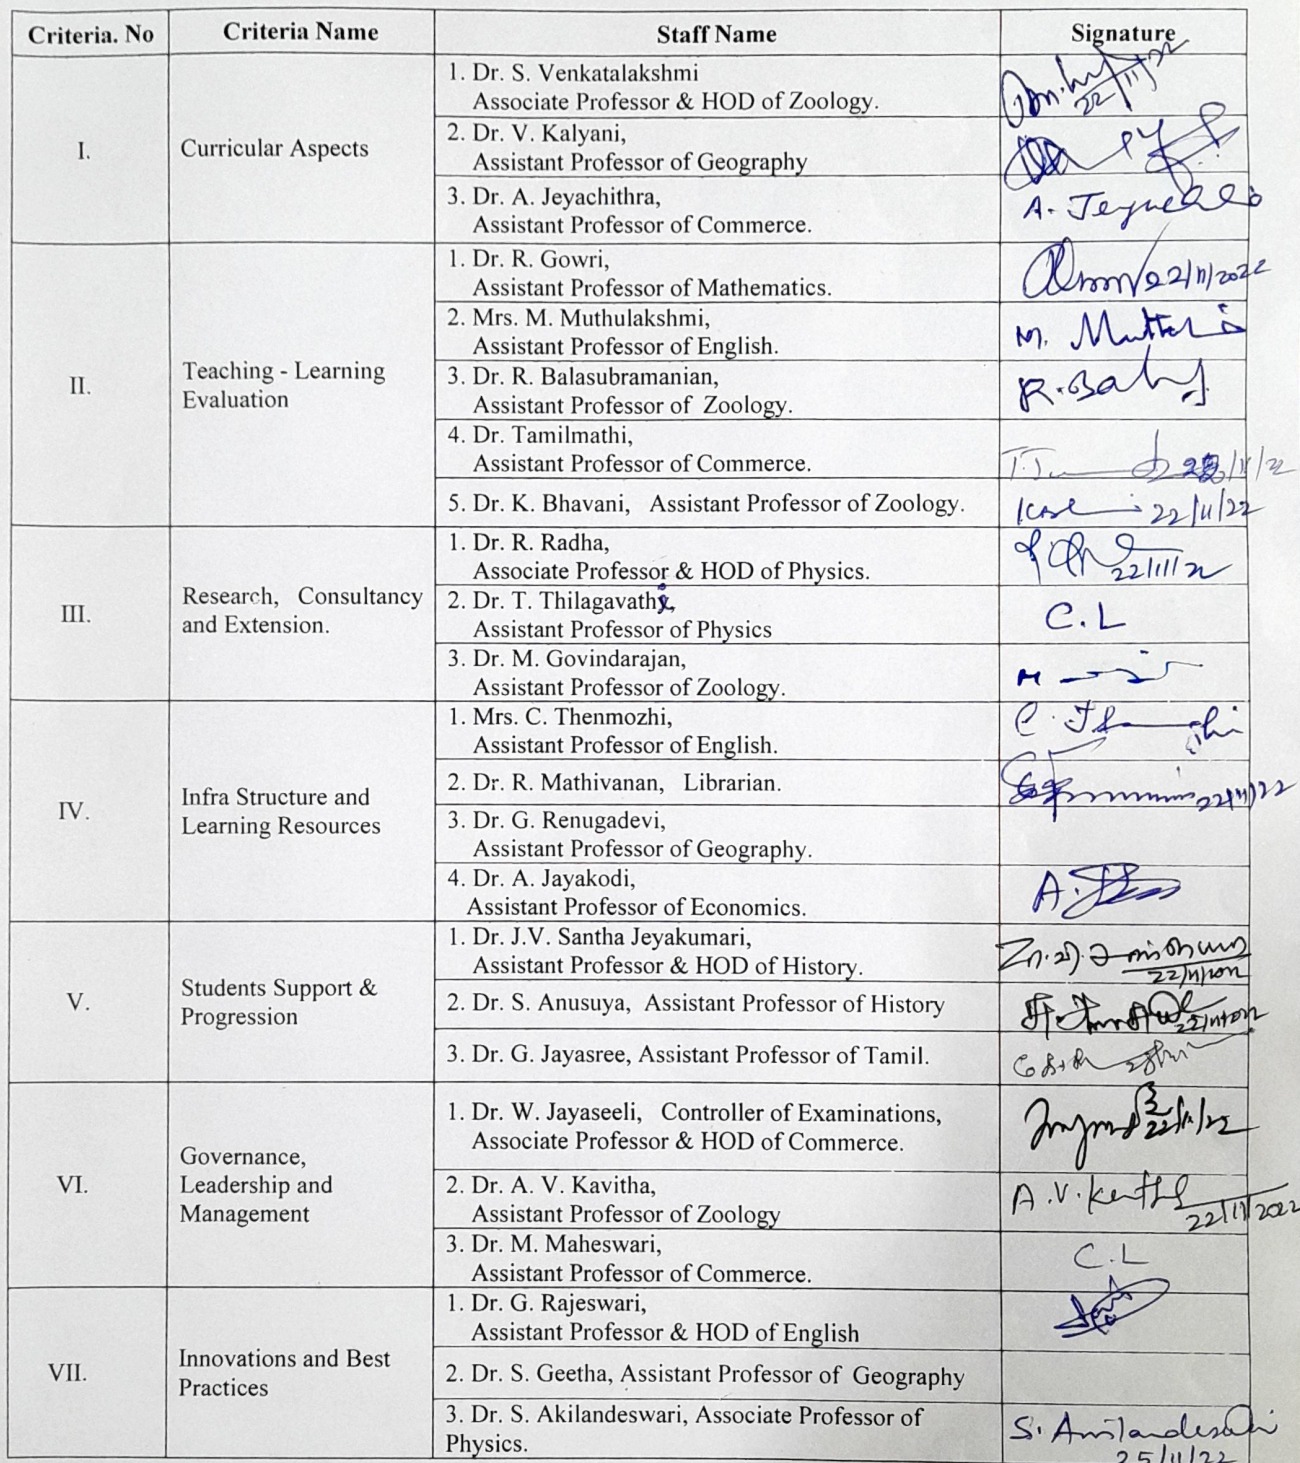 Criteria. No Criteria Name Staff Name Signature
I. Curricular Aspects
1. Dr. S. Venkatalakshmi
Associate Professor & HOD of Zoology.
22/11/22
2. Dr. V. Kalyani,
Assistant Professor of Geography
3. Dr. A. Jeyachithra,
Assistant Professor of Commerce.
A.
II. Teaching - Learning
Evaluation
1. Dr. R. Gowri,
Assistant Professor of Mathematics.
22/11/2022
2. Mrs. M. Muthulakshmi,
Assistant Professor of English.
M.
3. Dr. R. Balasubramanian,
Assistant Professor of Zoology.
R.
4. Dr. Tamilmathi,
Assistant Professor of Commerce.
5. Dr. K. Bhavani, Assistant Professor of Zoology.
22/11/22
III. Research, Consultancy
and Extension.
1. Dr. R. Radha,
Associate Professor & HOD of Physics.
22/11/22
2. Dr. T. Thilagavathi,
Assistant Professor of Physics
C.L
3. Dr. M. Govindarajan,
Assistant Professor of Zoology.
M
IV. Infra Structure and
Learning Resources
1. Mrs. C. Thenmozhi,
Assistant Professor of English.
C.
2. Dr. R. Mathivanan, Librarian.
22/11/22
3. Dr. G. Renugadevi,
Assistant Professor of Geography.
4. Dr. A. Jayakodi,
Assistant Professor of Economics.
A.
V. Students Support &
Progression
1. Dr. J.V. Santha Jeyakumari,
Assistant Professor & HOD of History.
22/11/2022
2. Dr. S. Anusuya, Assistant Professor of History
22/11/2022
3. Dr. G. Jayasree, Assistant Professor of Tamil.
VI. Governance,
Leadership and
Management
1. Dr. W. Jayaseeli, Controller of Examinations,
Associate Professor & HOD of Commerce.
22/11/22
2. Dr. A. V. Kavitha,
Assistant Professor of Zoology
A.V.
22/11/2022
3. Dr. M. Maheswari,
Assistant Professor of Commerce.
C.L
VII. Innovations and Best
Practices
1. Dr. G. Rajeswari,
Assistant Professor & HOD of English
2. Dr. S. Geetha, Assistant Professor of Geography
3. Dr. S. Akilandeswari, Associate Professor of
Physics.
S.
25/11/22